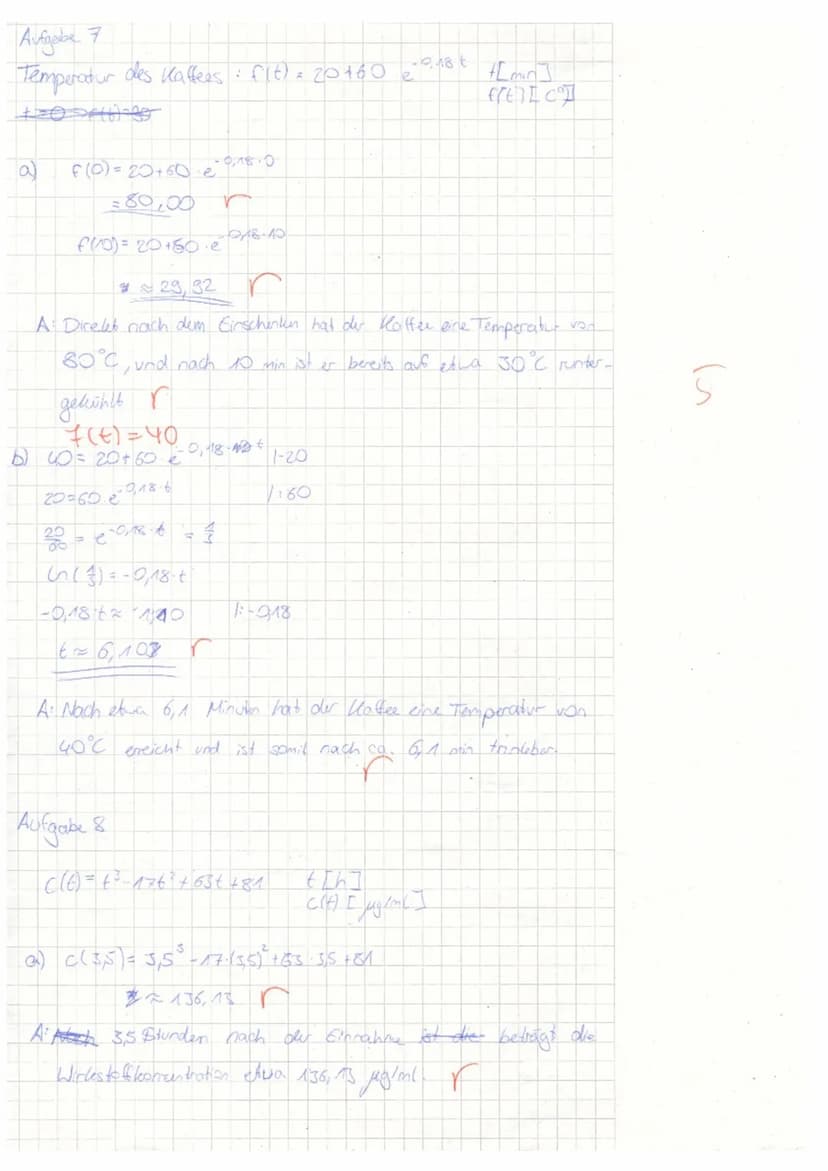 Aufgabe 7
Temperatur des Kaffees : f(t) = 20+60 e^-0,18t t[min]
f(t)[C°]
t=0 f(t)=
a) f(0) = 20+60 · e^-0,18·0
= 80,00 r
f(10) = 20+60 · e^-0,18·10
≈ 29,92 r
A: Direkt nach dem Einschenken hat der Kaffee eine Temperatur von
80°C, und nach 10 min ist er bereits auf etwa 30°C runter-
gekühlt r
5
f(t) = 40
b) 40 = 20+60 e^-0,18·t /-20
20 = 60 · e^-0,18·t /:60
20/60 = e^-0,18·t = 1/3
ln(1/3) = -0,18·t
-0,18·t ≈ -1,10 /:-0,18
t ≈ 6,10 r
A: Nach etwa 6,1 Minuten hat der Kaffee eine Temperatur von
40°C erreicht und ist somit nach ca. 6,1 min trinkbar.
r
Aufgabe 8
c(t) = t³-17t²+63t+81 t[h]
c(t) [µg/ml]
a) c(3,5) = 3,5³ - 17·(3,5)² + 63 · 3,5 + 81
≈ 136,13 r
A: Nach 3,5 Stunden nach der Einnahme ist die beträgt die
Wirkstoffkonzentration etwa 136,13 µg/ml. r